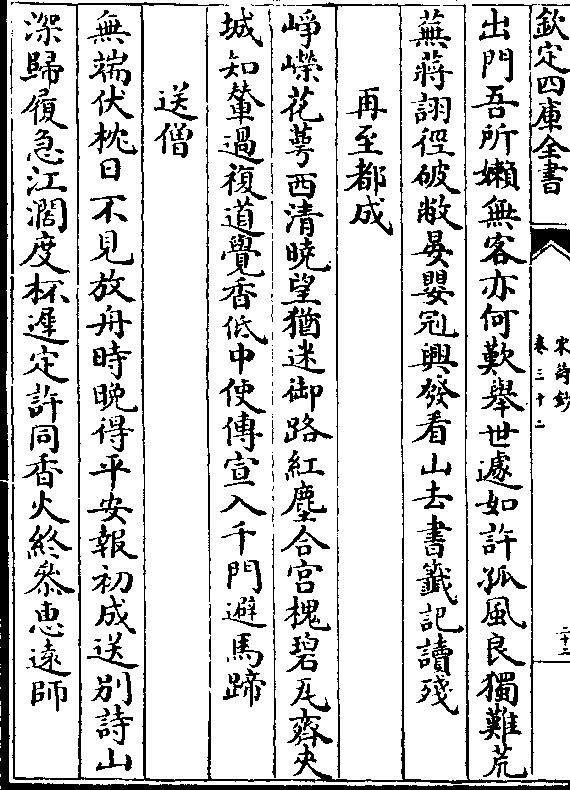 欽定四庫全書
宋詩鈔
卷三十二
二十二
出門吾所嬾無客亦何歎舉世遽如許孤風良獨難荒
蕪蔣詡徑破敝晏嬰冠興發看山去書籤記讀殘
再至都成
崢嶸花萼西清曉望猶迷御路紅塵合宮槐碧瓦齊夾
城知輦過複道覺香低中使傳宣入千門避馬蹄
送僧
無端伏枕日不見放舟時晚得平安報初成送別詩山
深歸履急江濶度杯遲定許同香火終叅恵遠師